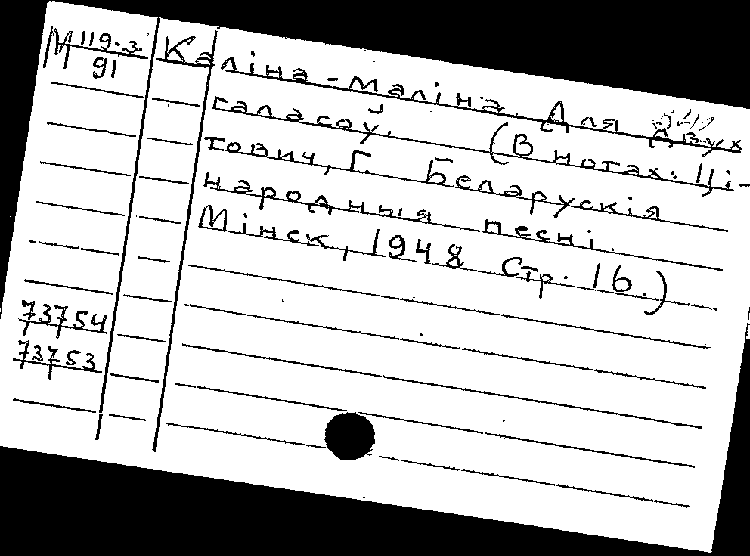 М 119-3
91
Каліна-маліна. Для двух
галасоў. (В нотах: Ці-
тович, Г. Беларускія
народныя песні.
Мінск, 1948 Стр. 16.)
73754
73753